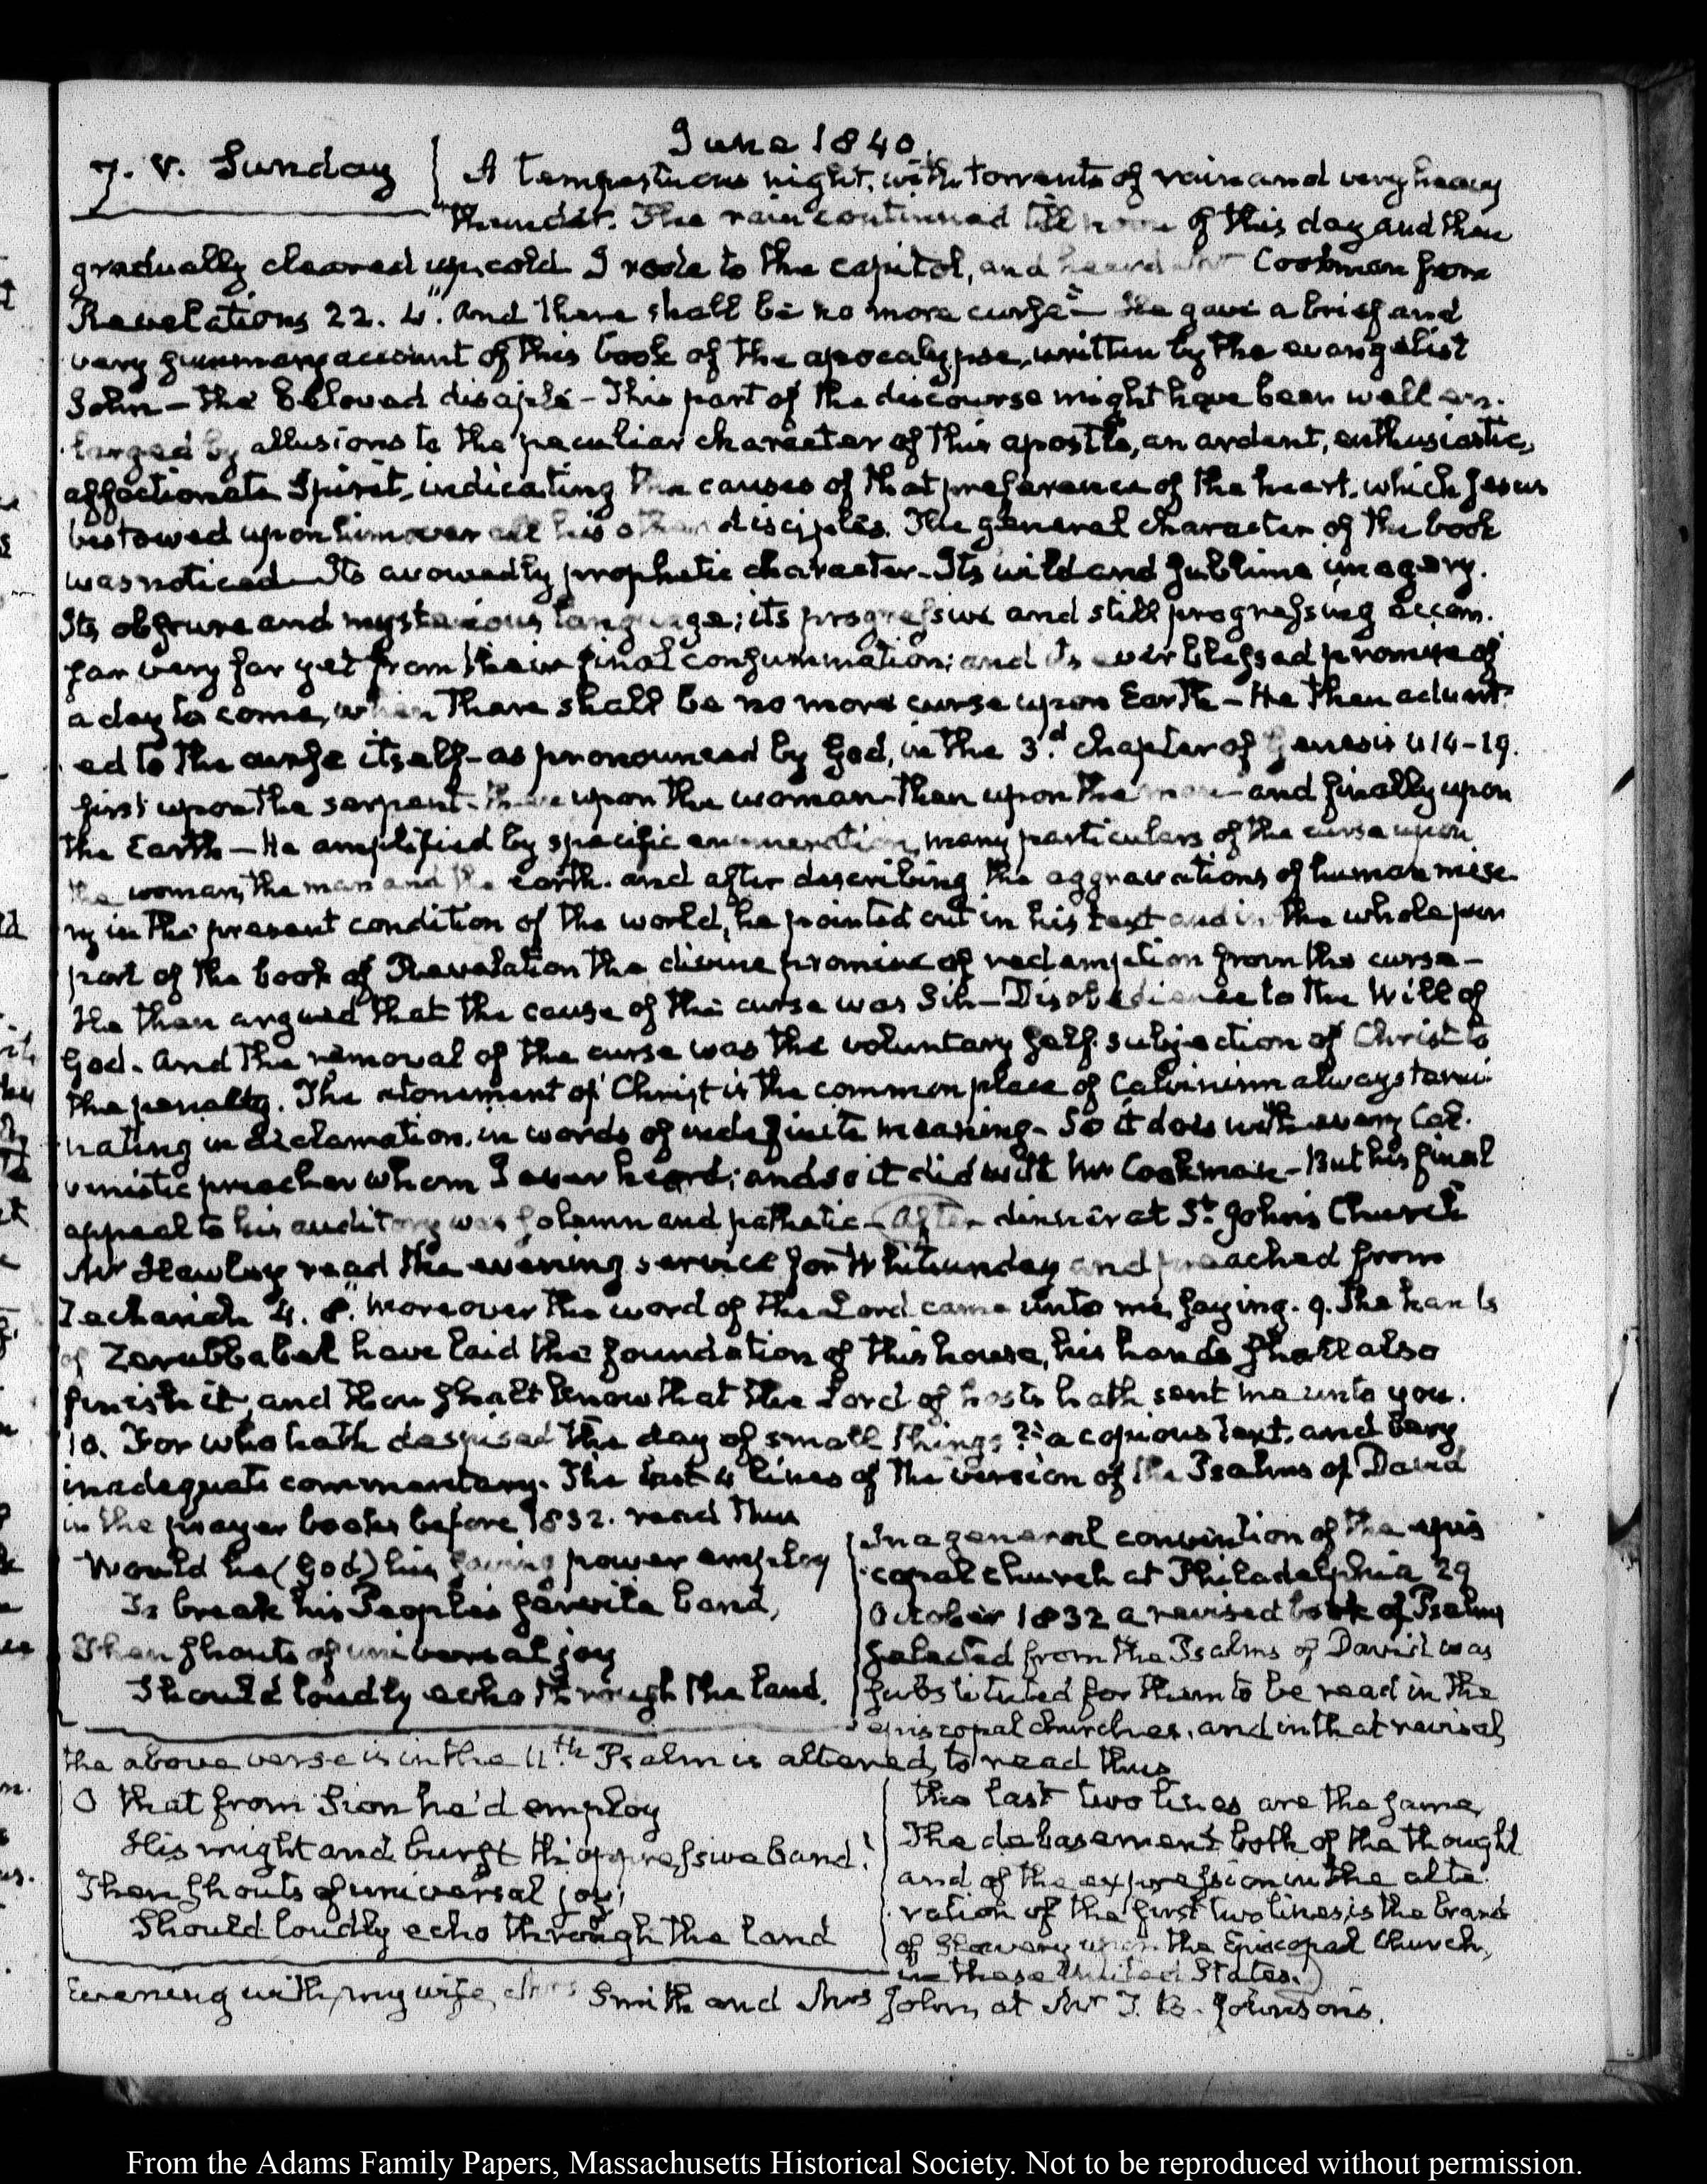 June 1840.
7. V. Sunday
A tempestuous night, with torrents of rain and very heavy
thunder. The rain continued till noon of this day and then
gradually cleared up, cold. I rode to the capitol, and heard Mr Cookman from
Revelations 22. 4". And there shall be no more curse" – He gave a brief and
very summary account of this book of the apocalypse, written by the evangelist
John – the beloved disciple – This part of the discourse might have been well en-
larged by allusions to the peculiar character of this apostle, an ardent, enthusiastic,
affectionate Spirit, indicating the causes of that preference of the heart, which Jesus
bestowed upon him over all his other disciples. The general character of the book
was noticed – Its avowedly prophetic character – Its wild and sublime imagery.
Its obscure and mysterious language; its progressive and still progressing
far very far yet from their final consummation; and its ever blessed promise of
a day to come, when there shall be no more curse upon Earth – He then advert-
ed to the curse itself – as pronounced by God, in the 3d. chapter of Genesis 14–19.
first upon the serpent – then upon the woman – then upon the man – and finally upon
the Earth – He amplified by specific enumeration, many particulars of the curse upon
the woman, the man and the earth. and after describing the aggravations of human mise-
ry in the present condition of the world, he pointed out in his text and in the whole
part of the book of Revelation the divine promise of redemption from the curse –
He then argued that the cause of the curse was Sin – Disobedience to the Will of
God. and the removal of the curse was the voluntary self subjection of Christ to
the penalty. The atonement of Christ is the common place of Calvinism always termi-
nating in declamation, in words of indefinite meaning – So it does with every Cal-
vinistic preacher whom I ever heard; and so it did with Mr Cookman – But his final
appeal to his auditory was solemn and pathetic – After dinner at St. John's Church
Mr Hawley read the evening service for Whitsunday and preached from
Zechariah 4. 8. "Moreover the word of the Lord came unto me, saying. 9. The hands
of Zerubbabel have laid the foundation of this house, his hands shall also
finish it, and thou shalt know that the Lord of hosts hath sent me unto you.
10. For who hath despised the day of small things?" a copious text, and very
inadequate commentary. The last 4 lines of the version of the Psalms of David
in the prayer books before 1832. read thus
Would he (God) his saving power employ
To break his People's servile band,
Then shouts of universal joy
Should loudly echo through the land.
In a general convention of the epis
copal church at Philadelphia 29
October 1832 a revised book of Psalms
selected from the Psalms of David was
substituted for them to be read in the
episcopal churches, and in that revisal
the above verse is in the 11.th Psalm is altered, to read thus
O that from Sion he'd employ
His might and burst th'oppressive band!
Then shouts of universal joy;
Should loudly echo through the land
the last two lines are the same,
The debasement both of the thought
and of the expression in the alte-
ration of the first two lines is the brand
of Slavery upon the Episcopal Church,
in these United States.)
Evening with my wife, Mrs Smith and Mrs John, at Mr T. B. Johnson's.
From the Adams Family Papers, Massachusetts Historical Society. Not to be reproduced without permission.